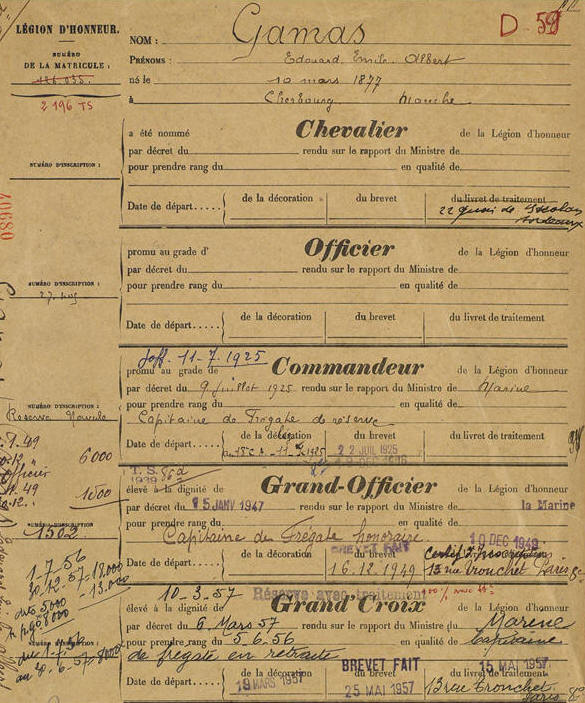 LÉGION D'HONNEUR.
NUMÉRO
DE LA MATRICULE:
126.035.
2196 TS
D. 59
NOM: Gamas
PRÉNOMS: Edouard Emile Albert
né le 10 mars 1877
à Cherbourg Manche
a été nommé Chevalier de la Légion d'honneur
par décret du rendu sur le rapport du Ministre de
pour prendre rang du en qualité de
NUMÉRO D'INSCRIPTION:
40680
Date de départ..... de la décoration du brevet du livret de traitement
22 quai de
Bordeaux
promu au grade d' Officier de la Légion d'honneur
par décret du rendu sur le rapport du Ministre de
pour prendre rang du en qualité de
NUMÉRO D'INSCRIPTION:
Date de départ..... de la décoration du brevet du livret de traitement
Joff. 11-7.1925
promu au grade de Commandeur de la Légion d'honneur
par décret du 9 juillet 1925 rendu sur le rapport du Ministre de Marine
pour prendre rang du en qualité de
NUMÉRO D'INSCRIPTION:
Réserve Nouvelle
Capitaine de Frégate de réserve
Date de départ..... de la décoration du brevet du livret de traitement
22 JUIL 1925
6000
Officier
1500
T. S.
1939
élevé à la dignité de Grand-Officier de la Légion d'honneur
par décret du 15 JANV 1947 rendu sur le rapport du Ministre de la Marine
pour prendre rang du en qualité de
Capitaine de Frégate honoraire
NUMÉRO D'INSCRIPTION:
1502
BREVET FAIT
10 DEC 1949
Date de départ..... de la décoration du brevet
16.12.1949
13 rue Tronchet Paris 8e
1-7-56
Réserve avec traitement
10-3-57
élevé à la dignité de Grand'Croix de la Légion d'honneur
par décret du 6 Mars 57 rendu sur le rapport du Ministre de Marine
pour prendre rang du 5-6-56 en qualité de Capitaine
de frégate en retraite
BREVET FAIT
15 MAI 1957
Date de départ..... de la décoration du brevet du livret de traitement
19 MARS 1957 25 MAI 1957 13 rue Tronchet
Paris 8e